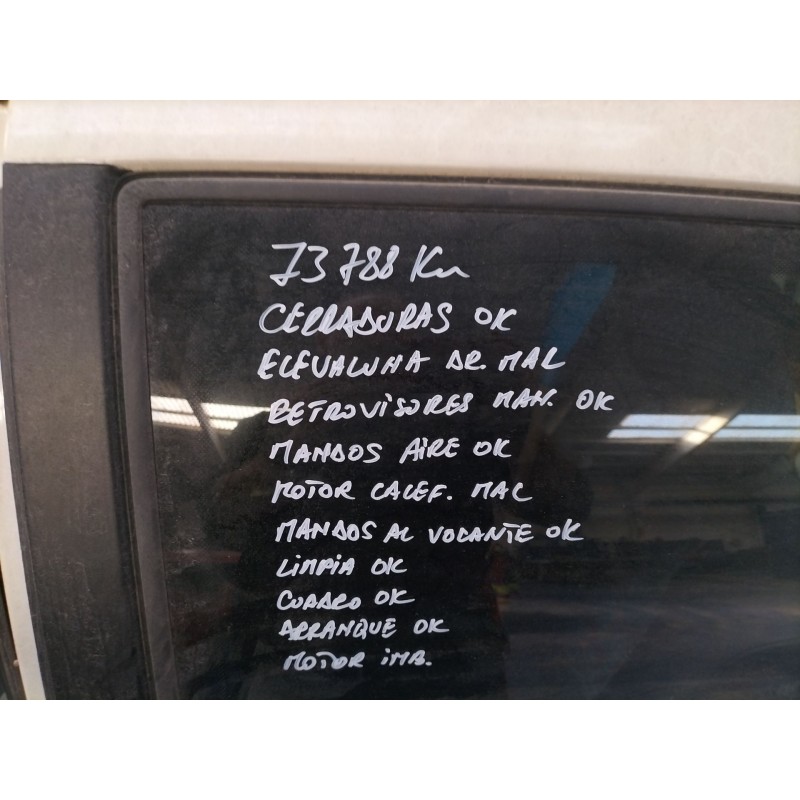 73788 Km
CERRADURAS OK
ELEVALUNA DR. MAL
RETROVISORES MAN. OK
MANDOS AIRE OK
MOTOR CALEF. MAL
MANDOS AL VOLANTE OK
LIMPIA OK
CUADRO OK
ARRANQUE OK
MOTOR IMB.